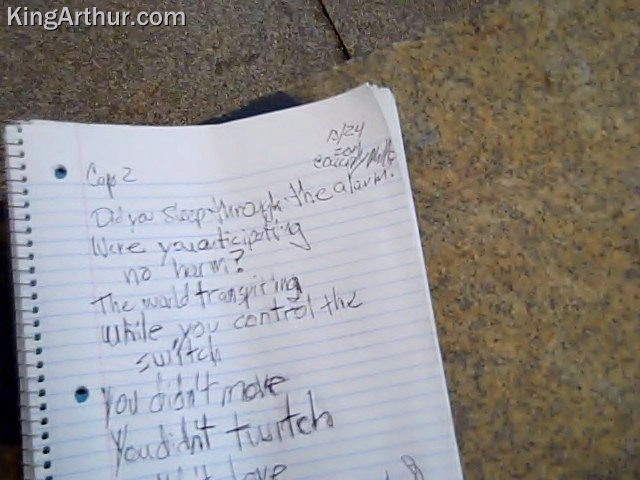 KingArthur.com
10/24
Capo 2
Did you sleep through the alarm?
Were you anticipating
no harm?
The world transpiring
While you control the
switch
You didn't move
You didn't twitch
love